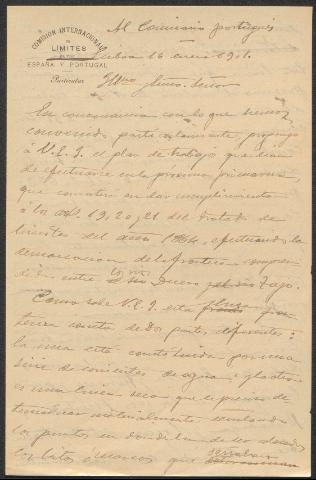 COMISIÓN INTERNACIONAL
DE
LÍMITES
ENTRE
ESPAÑA Y PORTUGAL
Particular
Al Comisario portugués
Lisboa 16 enero 1901.
Illmo Señor
En consonancia con lo que hemos
convenido particularmente, propongo
á V.E.I. el plan de trabajo que
de efectuarse en la próxima primavera
que consiste en dar cumplimiento
á los arts 19, 20 y 21 del tratado de
límites del año 1864, efectuando la
demarcacion de la frontera compren
dida entre los rios Duero Tajo.
Como sabe V.E.I. esta
consta de dos partes diferentes:
la una está constituida por una
serie de corrientes de agua y la otra
es una linea seca que es preciso
materialmente señalando
los puntos en donde han de ser alzados
los hitos ó marcos que señalan